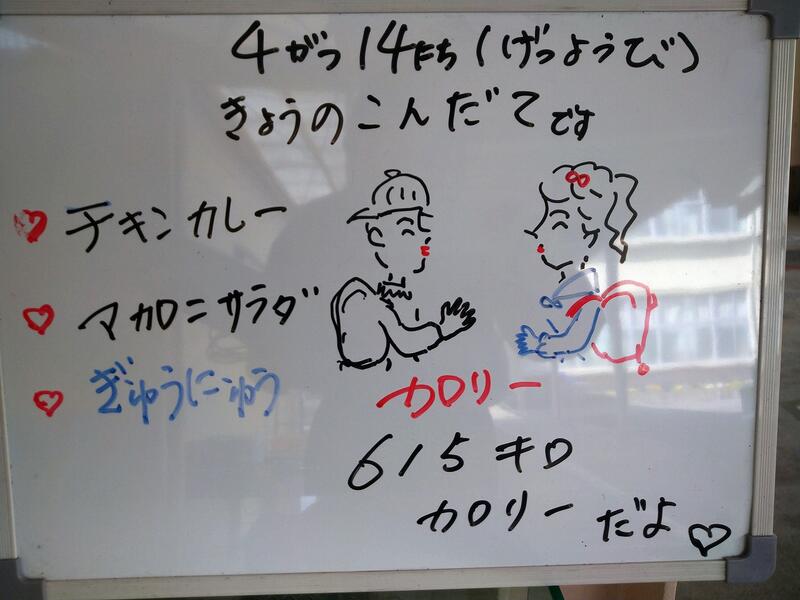 4がつ14にち(げつようび)
きょうのこんだてです
チキンカレー
マカロニサラダ
ぎゅうにゅう
カロリー
615キロ
カロリーだよ